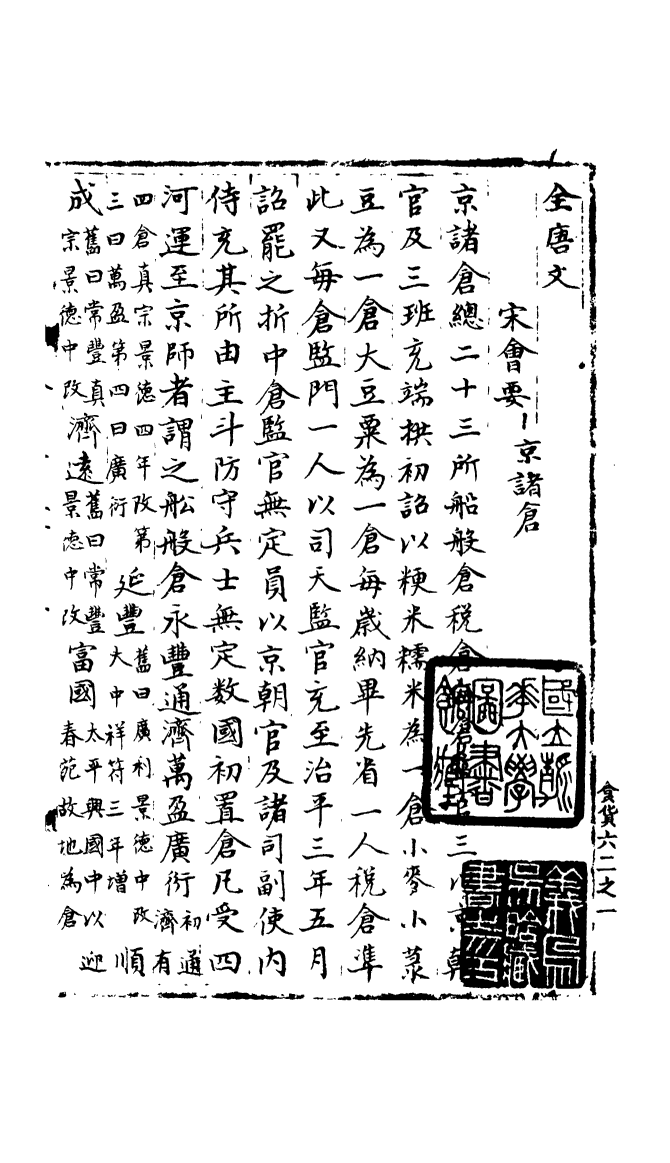 全唐文
宋會要 京諸倉
京諸倉總二十三所船般倉税倉三京朝
官及三班充端拱初詔以粳米糯米為一倉小麥小菉
豆為一倉大豆粟為一倉每歲納畢先省一人税倉準
此又每倉監門一人以司天監官充至治平三年五月
詔罷之折中倉監官無定員以京朝官及諸司副使内
侍充其所由主斗防守兵士無定数國初置倉凡受四
河運至京師者謂之舩般倉永豐通濟萬盈廣衍初通濟有
四倉真宗景德四年改第三曰萬盈第四曰廣衍延豐舊曰廣利景德中改大中祥符三年增順
成舊曰常豐真宗景德中改濟遠舊曰常豐景德中改富國太平興國中以春苑故地為倉迎
食貨六二之一